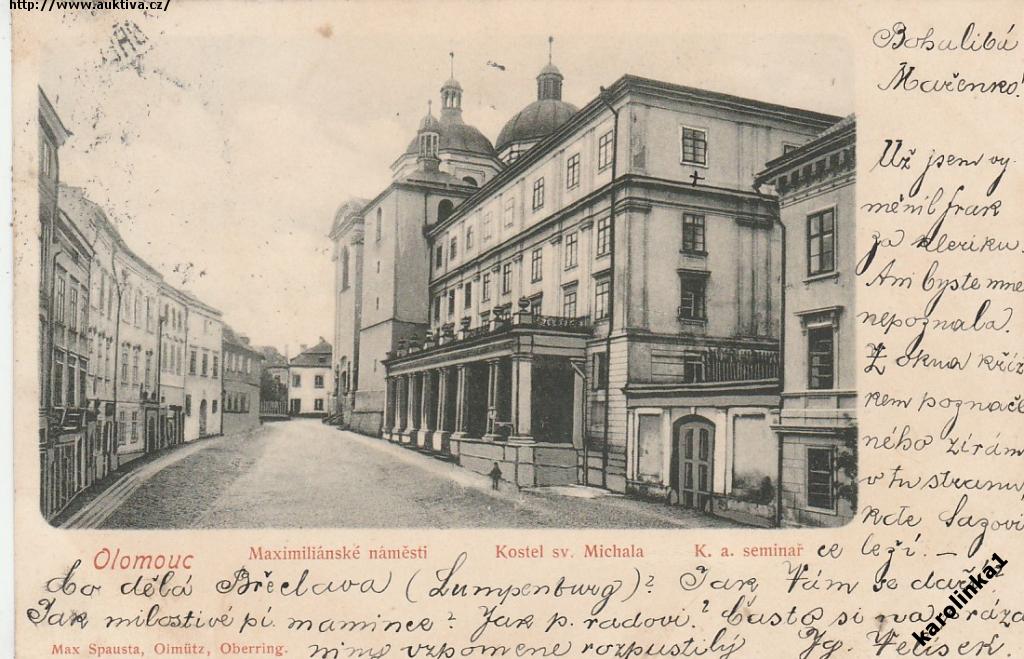 http://www.auktiva.cz/
Bohulibá
Mařenko!
Už jsem vy-
měnil frak
za kleriku.
Ani byste mne
nepoznala.
Z okna kříž-
kem poznače-
ného zírám
v tu stranu,
kde Sazovi-
ce leží. —
Olomouc
Maximiliánské náměstí
Kostel sv. Michala
K. a. seminař
Co dělá Břeclava (Lumpenburg)? Jak Vám se daří?
Jak milostivé pí. mamince? Jak p. radovi? Často si na prázd
niny vzpomene rozpustilý Ig. Velísek.
Max Spausta, Olmütz, Oberring.
karolinka1